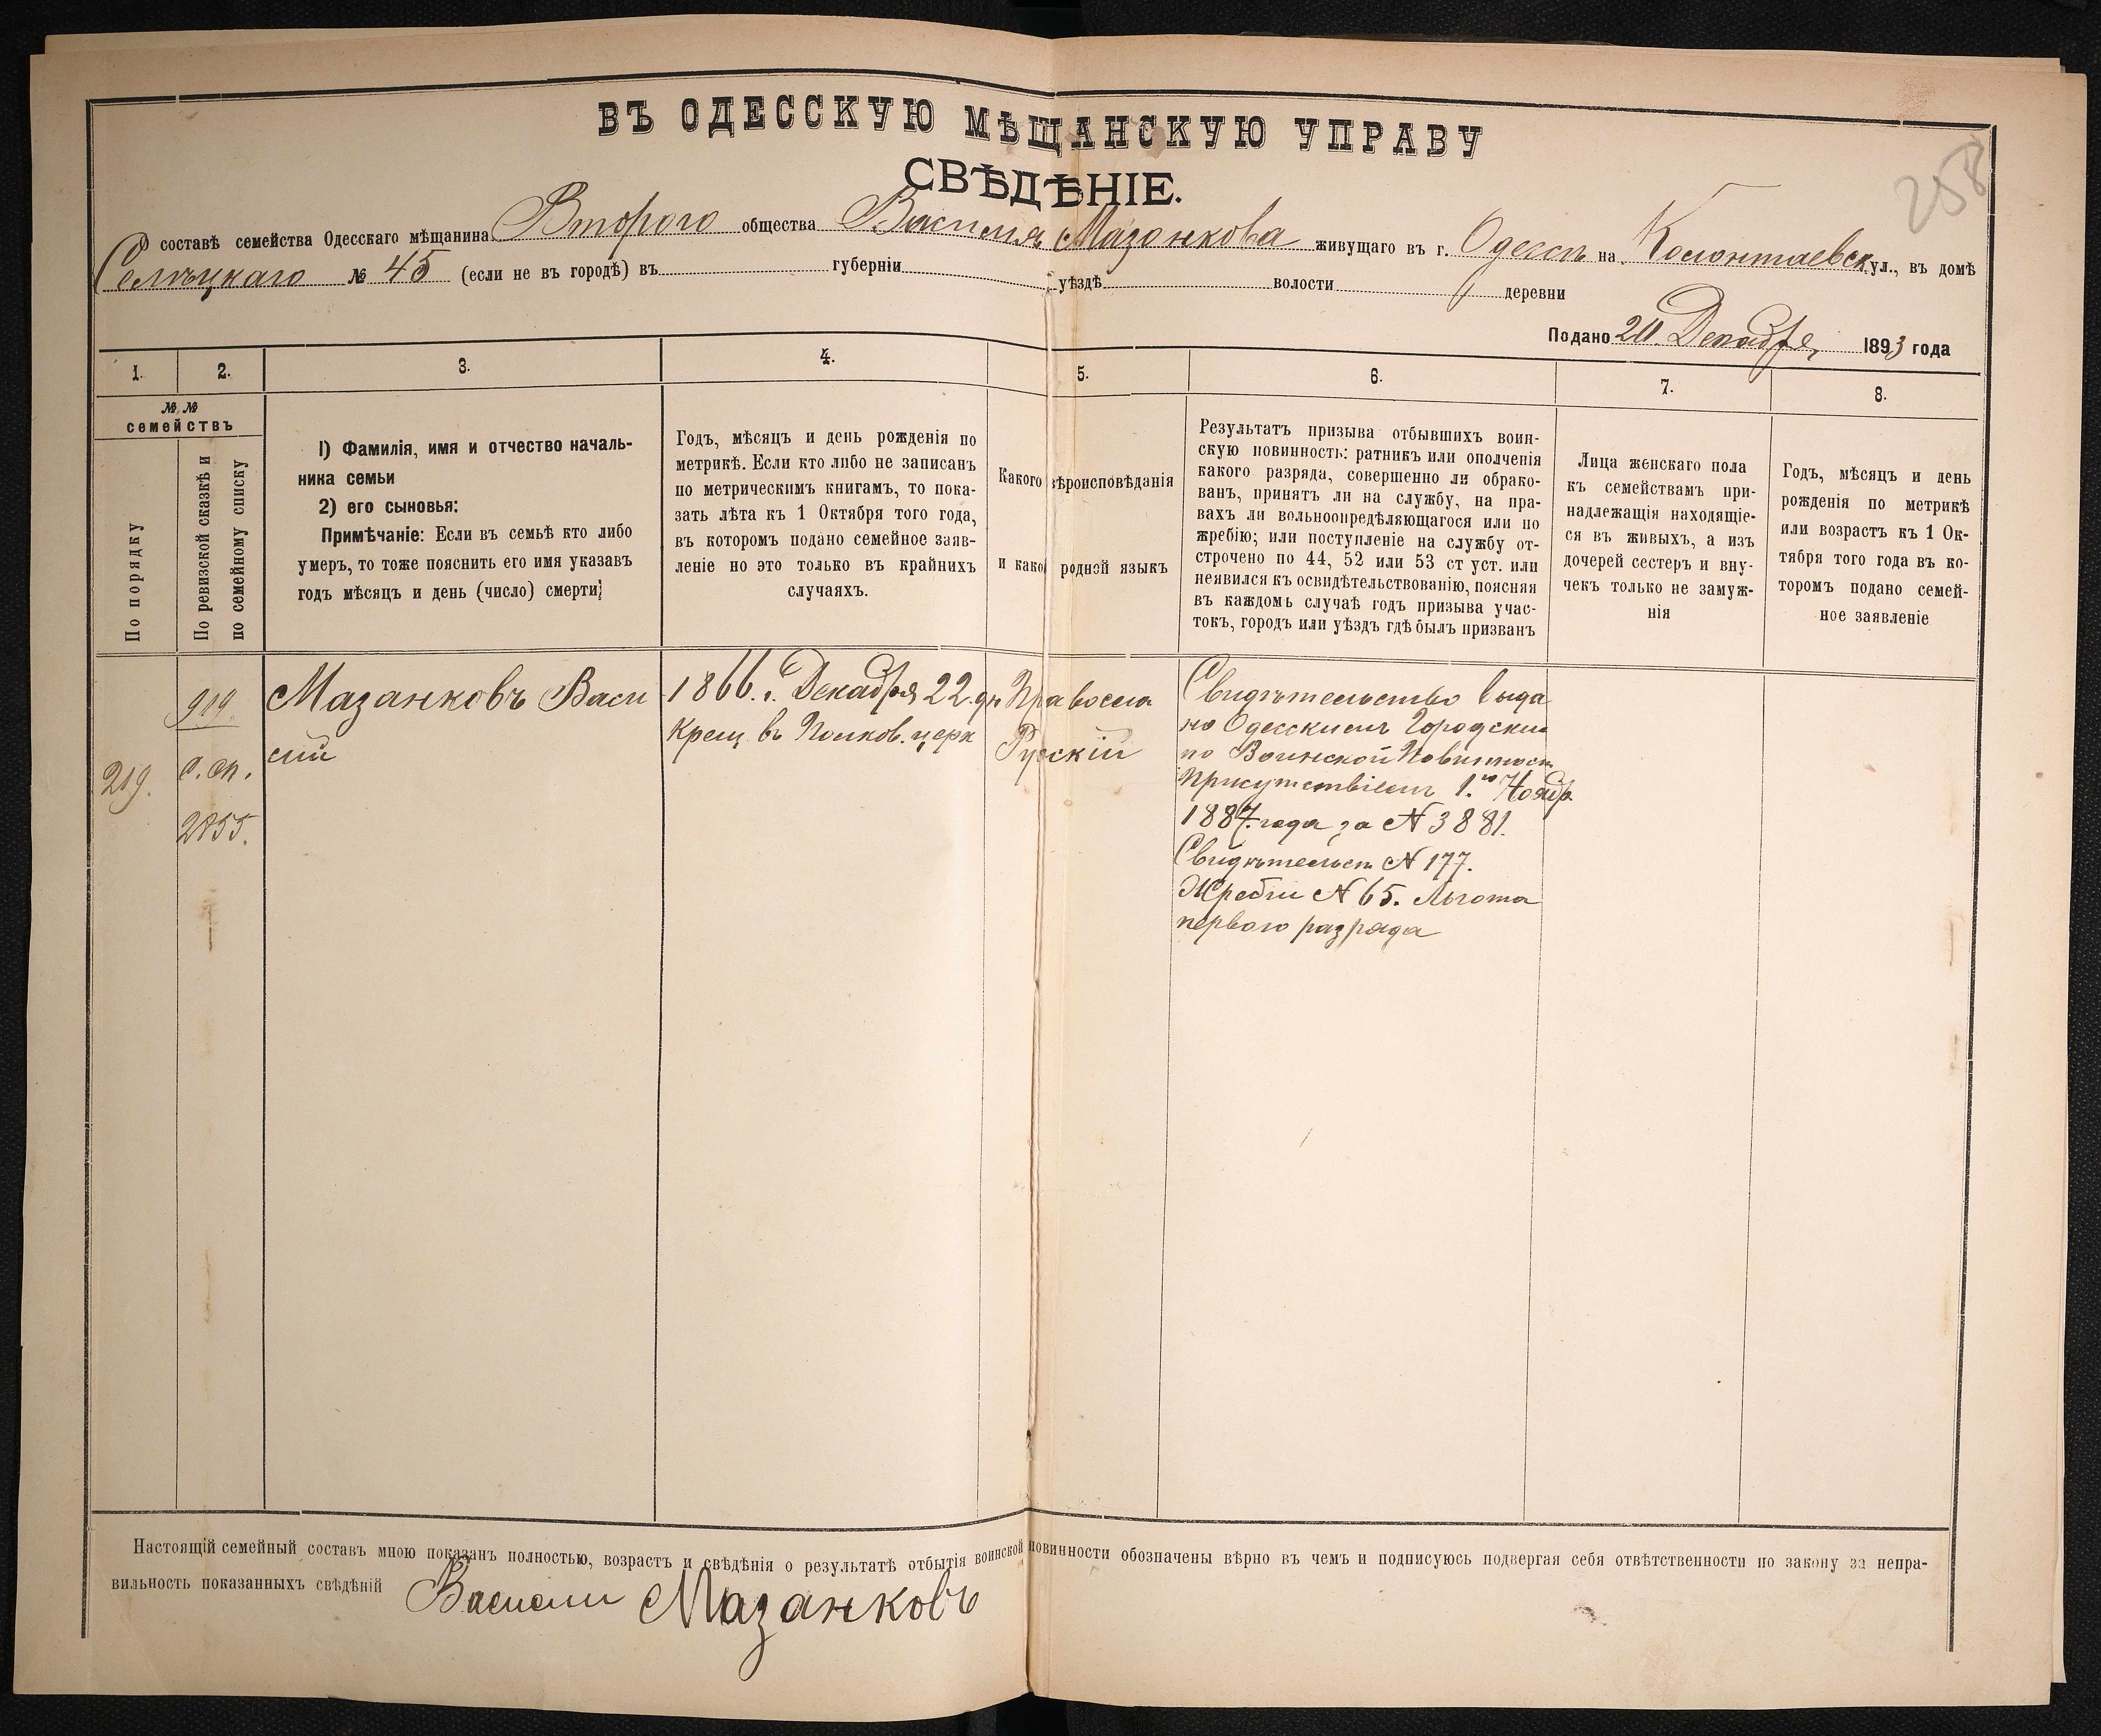 258
ВЪ ОДЕССКУЮ МѢЩАНСКУЮ УПРАВУ
СВѢДѢНІЕ.
О составѣ семейства Одесскаго мѣщанина Второго общества Василия Мазанкова живущаго въ г. Одессѣ на Колонтаевск ул., въ домѣ
№ 45 (если не въ городѣ) въ губерніи уѣздѣ волости деревни
Подано Декабря 1893 года
1. 2. 3. 4. 5. 6. 7. 8.
№ №
семействъ
По порядку
По ревизской сказкѣ и
по семейному списку
1) Фамилія, имя и отчество началь-
ника семьи
2) его сыновья:
Примѣчаніе: Если въ семьѣ кто либо
умеръ, то тоже пояснить его имя указавъ
годъ мѣсяцъ и день (число) смерти;
Годъ, мѣсяцъ и день рожденія по
метрикѣ. Если кто либо не записанъ
по метрическимъ книгамъ, то пока-
зать лѣта къ 1 Октября того года,
въ которомъ подано семейное заяв-
леніе но это только въ крайнихъ
случаяхъ.
Какого вѣроисповѣданія
и какой родной языкъ
Результатъ призыва отбывшихъ воин-
скую повинность: ратникъ или ополченія
какого разряда, совершенно ли обрако-
ванъ, принятъ ли на службу, на пра-
вахъ ли вольноопредѣляющагося или по
жребію; или поступленіе на службу от-
строчено по 44, 52 или 53 ст уст. или
неявился къ освидѣтельствованію, поясняя
въ каждомъ случаѣ годъ призыва учас-
токъ, городъ или уѣздъ гдѣ былъ призванъ
Лица женскаго пола
къ семействамъ при-
надлежащія находящіе-
ся въ живыхъ, а изъ
дочерей сестеръ и вну-
чекъ только не замуж-
нія
Годъ, мѣсяцъ и день
рожденія по метрикѣ
или возрастъ къ 1 Ок-
тября того года въ ко-
торомъ подано семей-
ное заявленіе
219.
919.
с. сп.
2855.
Мазанковъ Васи
лій
1866. г. Декабря 22. дн
Крещ. въ Полков. церк
Правосла
Рускій
Свидѣтельство выда
но Одесскимъ Городским
по Воинской Повинност
Присутствіемъ 1.го Ноябр
1887. года за N 3881.
Свидѣтельст N 177.
Жребіи N 65. Льгота
перваго разряда
Настоящій семейный составъ мною показанъ полностью, возрастъ и свѣдѣнія о результатѣ отбытія воинской повинности обозначены вѣрно въ чемъ и подписуюсь подвергая себя отвѣтственности по закону за непра-
вильность показанныхъ свѣдѣній Василий Мазанковъ